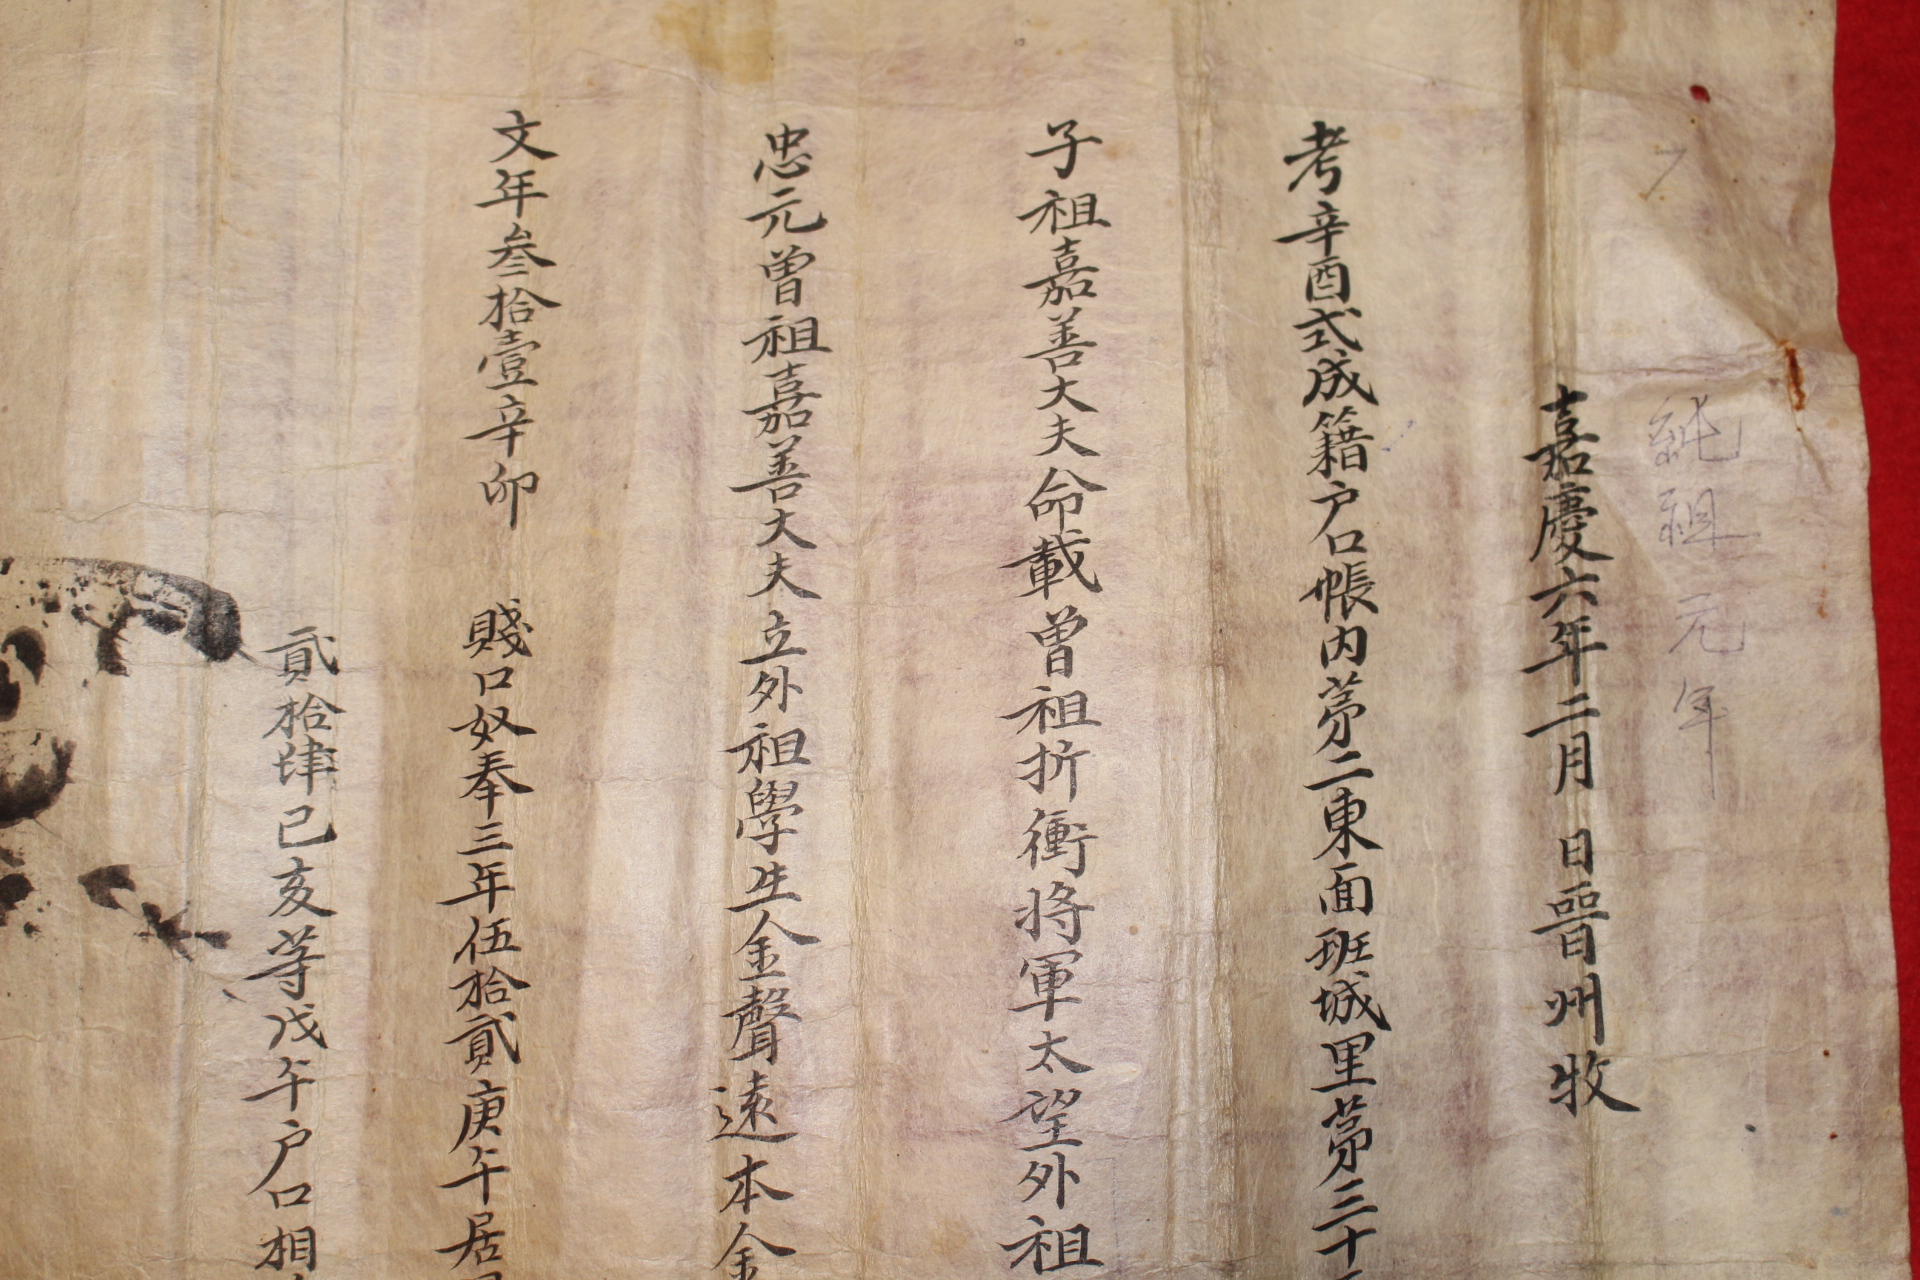 純祖元年
嘉慶六年二月 日晉州牧
考辛酉式成籍户口帳内茅二東面班城里茅三十
子祖嘉善大夫命載曽祖折衝将軍太望外祖
忠元曽祖嘉善大夫立外祖學生金聲遠本金
文年叁拾壹辛卯 賤口奴奉三年伍拾貳庚午居
貳拾肆己亥等戊午户口相